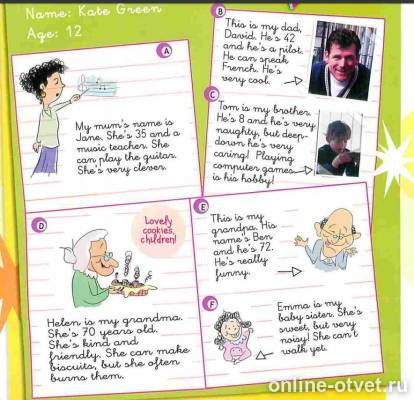 Name: Kate Green
Age: 12
A
My mum's name is
Jane. She's 35 and a
music teacher. She
can play the guitar.
She's very clever.
B
This is my dad,
David. He's 42
and he's a pilot.
He can speak
French. He's
very cool.
C
Tom is my brother.
He's 8 and he's very
naughty, but deep-
down he's very
caring! Playing
computer games
is his hobby!
D
Lovely
cookies,
children!
Helen is my grandma.
She's 70 years old.
She's kind and
friendly. She can make
biscuits, but she often
burns them.
E
This is my
grandpa. His
name's Ben
and he's 72.
He's really
funny.
F
Emma is my
baby sister. She's
sweet, but very
noisy! She can't
walk yet.
online-otvet.ru